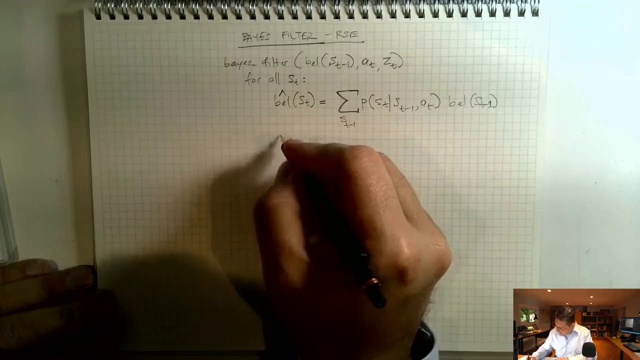 BAYES FILTER - RSE
bayes filter (bel(St-1), at, Zt)
for all St:
b̂el(St) = ∑St-1 P(St|St-1, at) bel(St-1)